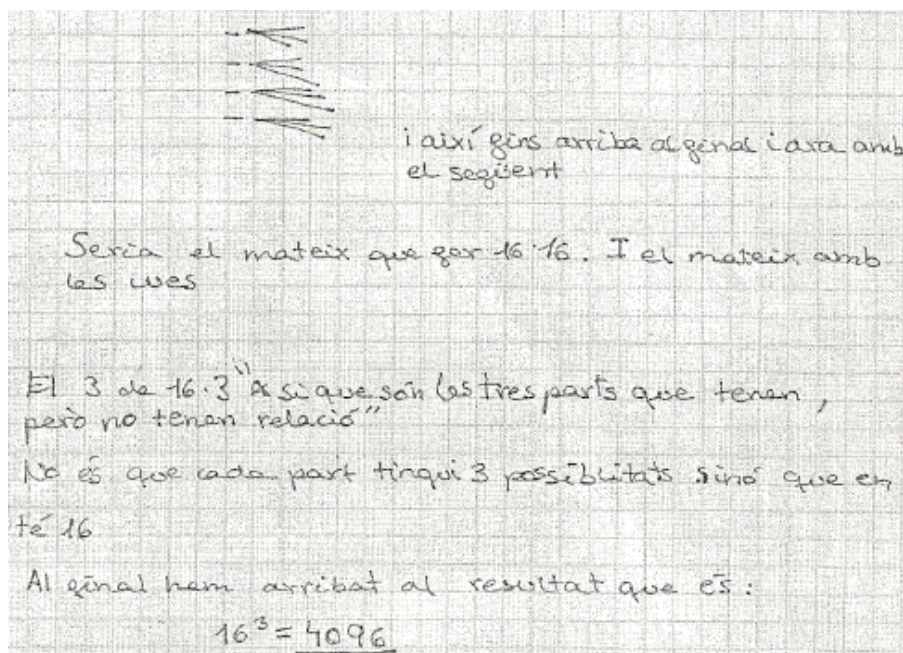 i així fins arriba al final i ara amb
el següent
Seria el mateix que fer 16·16. I el mateix amb
les cues
El 3 de 16·3 "A si que són les tres parts que tenen,
però no tenen relació"
No és que cada part tingui 3 possiblitats sinó que en
té 16
Al final hem arribat al resultat que és:
16³ = 4096